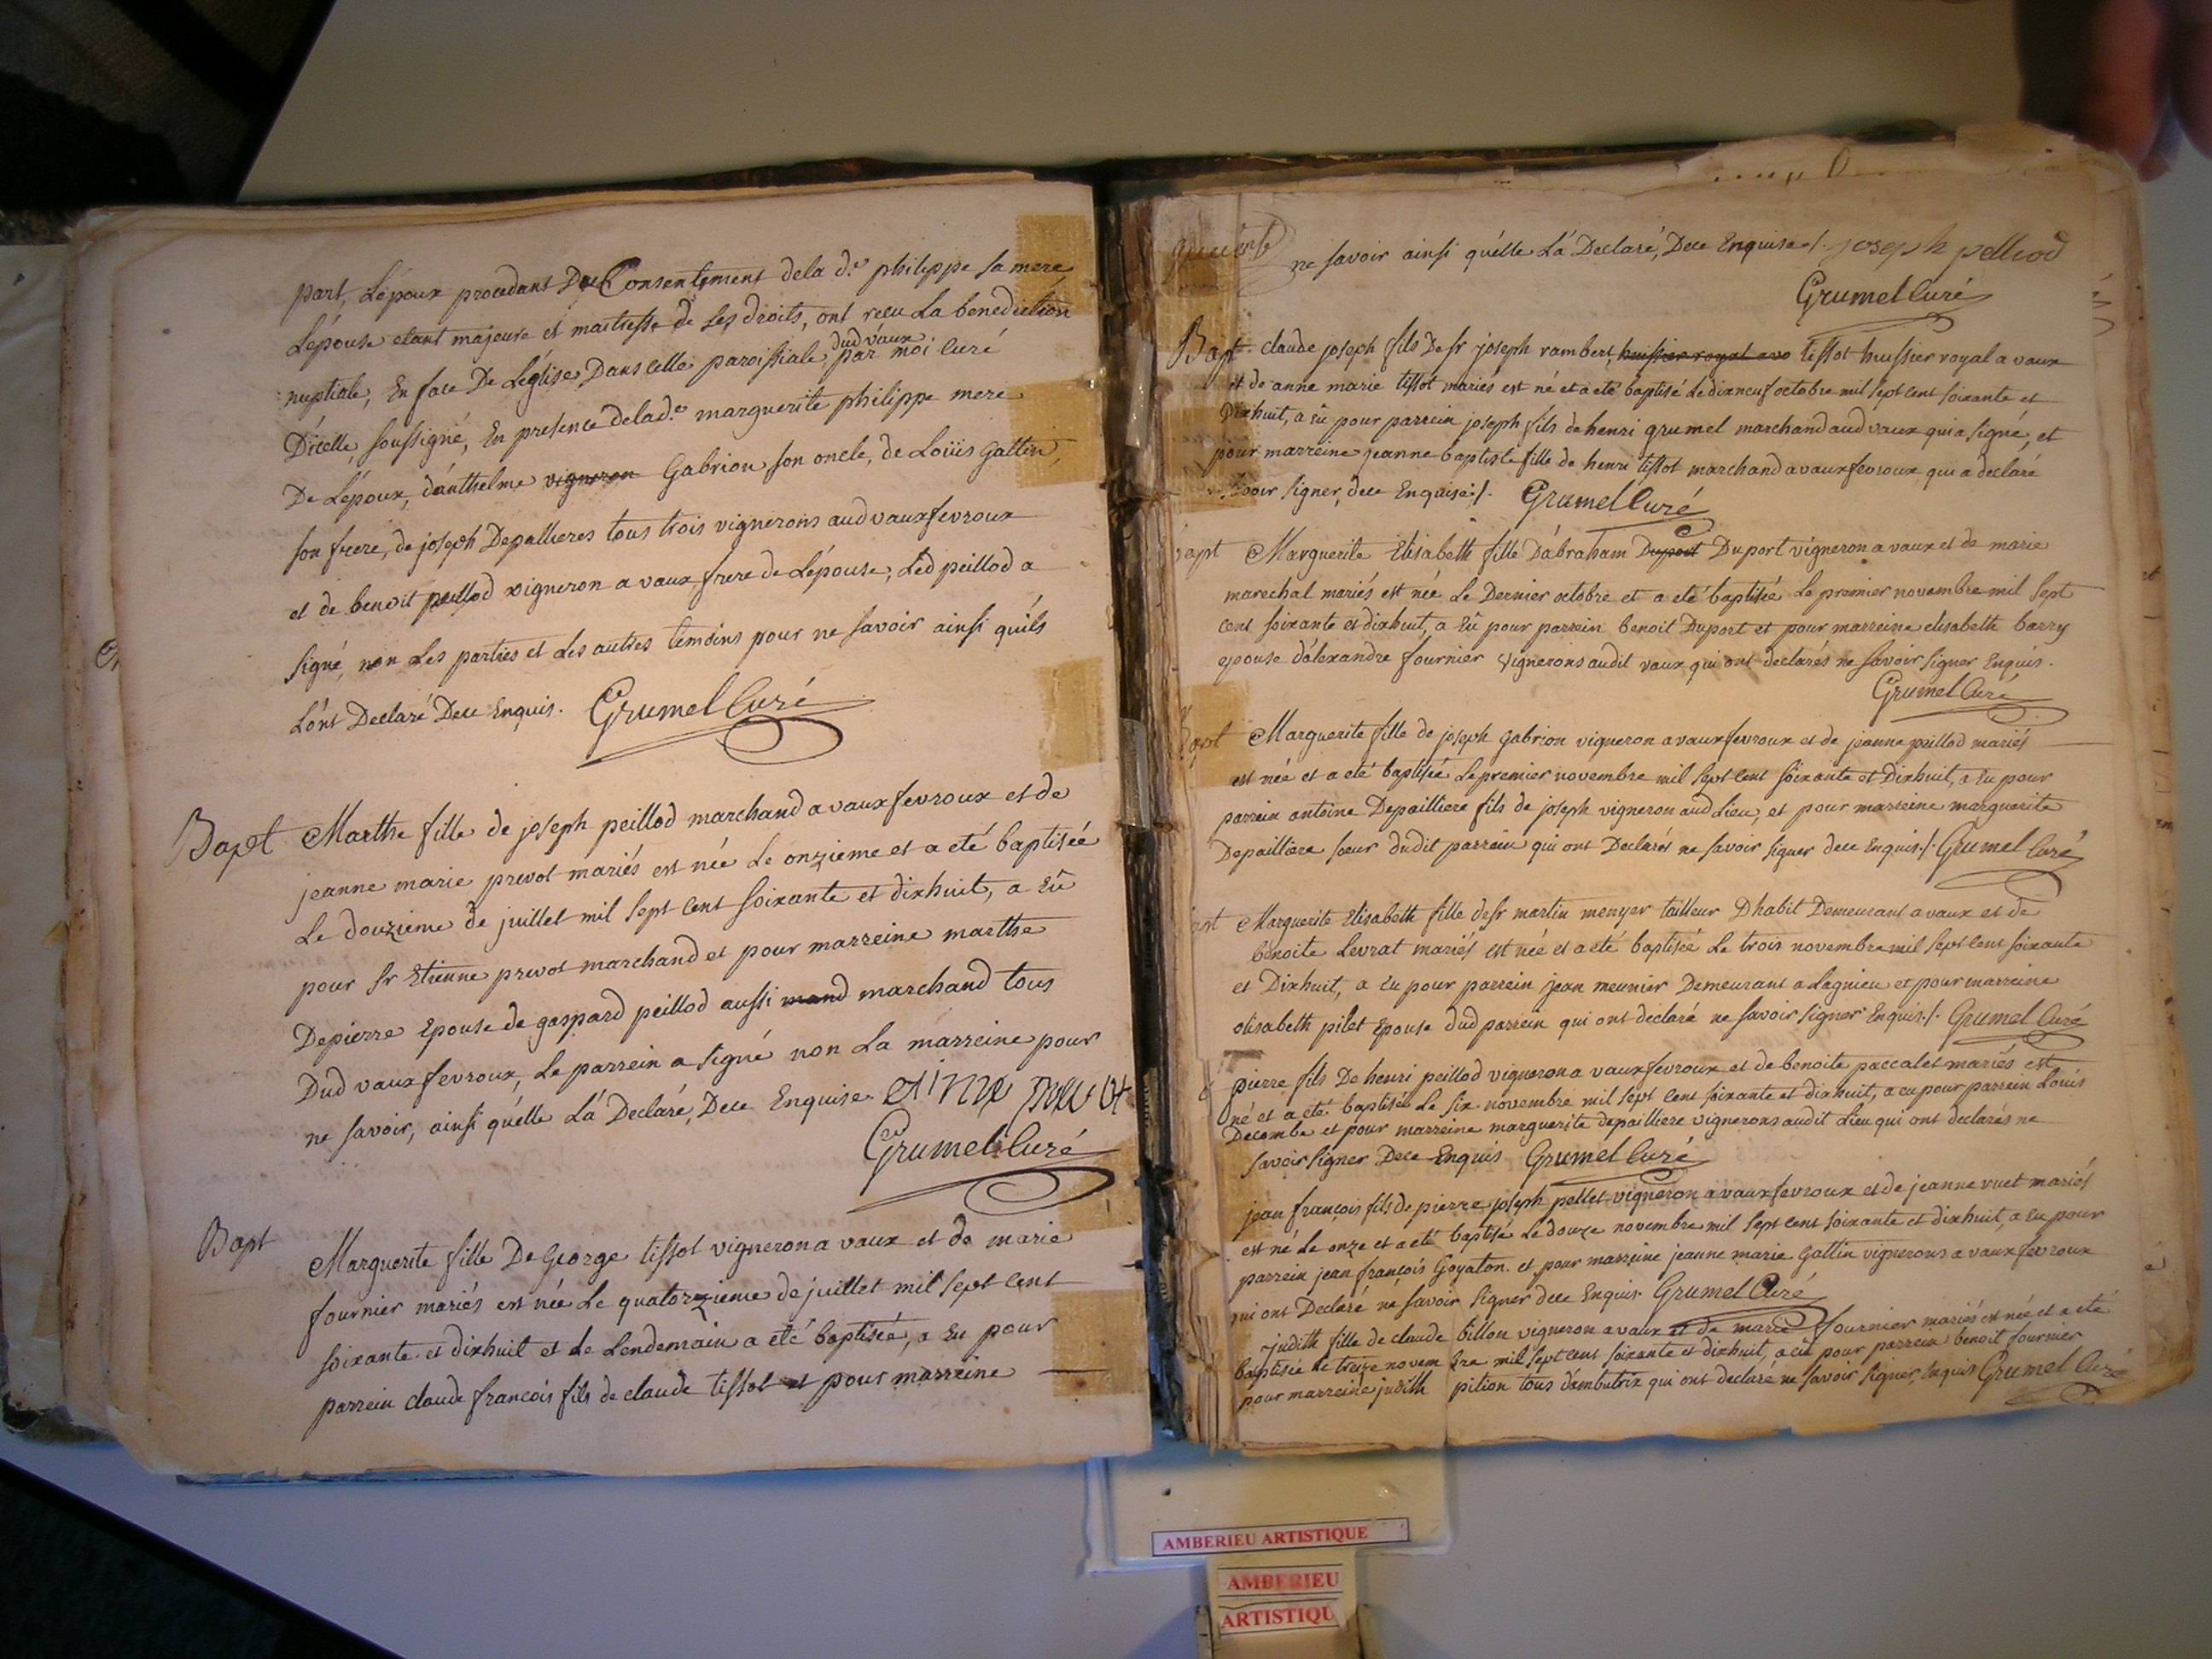 part, Lépoux procedant Du Consentement dela d.e philippe sa mere
Lépouse etant majeure et maitresse de ses droits, ont recu La benediction
nuptiale, En face De Léglise Dans celle paroissiale dud vaux par moi curé
D'icelle, soussigné, En presence delad.e marguerite philippe mere
De Lépoux, d'anthelme vigneron Gabrion son oncle, de Loüis gallin
son frere, de joseph Depallieres tous trois vignerons aud vauxfevroux
et de benoit peillod vigneron a vaux frere de Lépouse, Led peillod a
signé, non Les parties et Les autres temoins pour ne savoir ainsi qu'ils
L'ont Declaré Dece Enquis. Grumel Curé
Bapt Marthe fille de joseph peillod marchand a vauxfevroux et de
jeanne marie prevot mariés est née Le onzieme et a eté baptisée
Le douzieme de juillet mil sept cent soixante et dixhuit, a Eü
pour sr Etienne prevot marchand et pour marreine marthe
Depierre Epouse de gaspard peillod aussi mand marchand tous
Dud vauxfevroux, Le parrein a signé non La marreine pour
ne savoir, ainsi qu'elle L'a Declaré, Dece Enquise.
Grumel Curé
Bapt Marguerite fille De George tissot vigneron a vaux et de marie
fournier mariés est née Le quatorzieme de juillet mil sept cent
soixante et dixhuit et Le Lendemain a eté baptisée, a Eu pour
parrein claude francois fils de claude tissot et pour marreine
ne savoir ainsi qu'elle L'a Declaré, Dece Enquise ./. joseph pelliod
Grumel Curé
Bapt claude joseph fils De sr joseph rambert, huissier royal avo tissot huissier royal a vaux
et de anne marie tissot mariés est né et a eté baptisé Le dixneuf octobre mil sept cent soixante et
Dixhuit, a Eü pour parrein joseph fils de henri grumel marchand aud vaux qui a signé, et
pour marreine jeanne baptiste fille de henri tissot marchand a vauxfevroux qui a declaré
savoir signer, dece Enquise ./. Grumel Curé
bapt Marguerite Elisabeth fille D'abraham Duport Duport vigneron a vaux et de marie
marechal mariés est née Le Dernier octobre et a eté baptisée Le premier novembre mil sept
cent soixante et dixhuit, a Eü pour parrein benoit Duport et pour marreine elisabeth barry
epouse d'alexandre fournier vignerons audit vaux qui ont declarés ne savoir signer Enquis.
Grumel Curé
Bapt Marguerite fille de joseph gabrion vigneron a vauxfevroux et de jeanne peillod mariés
est née et a eté baptisée Le premier novembre mil sept cent soixante et Dixhuit, a Eu pour
parrein antoine Depailliere fils de joseph vigneron aud Lieu, et pour marreine marguerite
Depailliere soeur dudit parrein qui ont Declarés ne savoir signer dece Enquis ./. Grumel Curé
bapt Marguerite Elisabeth fille de sr martin menyer tailleur Dhabit Demeurant a vaux et de
benoite Levrat mariés est née et a eté baptisée Le trois novembre mil sept cent soixante
et Dixhuit, a Eu pour parrein jean meunier Demeurant a Lagnieu et pour marreine
elisabeth pilet Epouse dud parrein qui ont declaré ne savoir signer Enquis ./. Grumel Curé
pierre fils De henri peillod vigneron a vauxfevroux et de benoite paccalet mariés est
né et a eté baptisé Le six novembre mil sept cent soixante et dixhuit, a eu pour parrein Loüis
Decombe et pour marreine marguerite depailliere vignerons audit Lieu qui ont declarés ne
savoir signer Dece Enquis Grumel Curé
jean françois fils de pierre joseph pellet vigneron a vauxfevroux et de jeanne vuet mariés
est né Le onze et a eté baptisé Le douze novembre mil sept cent soixante et dixhuit, a Eu pour
parrein jean françois Goyaton. et pour marreine jeanne marie gallin vignerons a vauxfevroux
qui ont Declaré ne savoir signer dece Enquis. Grumel Curé
judith fille de claude billon vigneron a vaux et de marie fournier mariés est née et a eté
baptisée Le treize novembre mil sept cent soixante et dixhuit, a eü pour parrein benoit fournier
pour marreine judith pition tous d'ambutrix qui ont declaré ne savoir signer, Enquis Grumel Curé
AMBERIEU ARTISTIQUE
AMBERIEU
ARTISTIQU